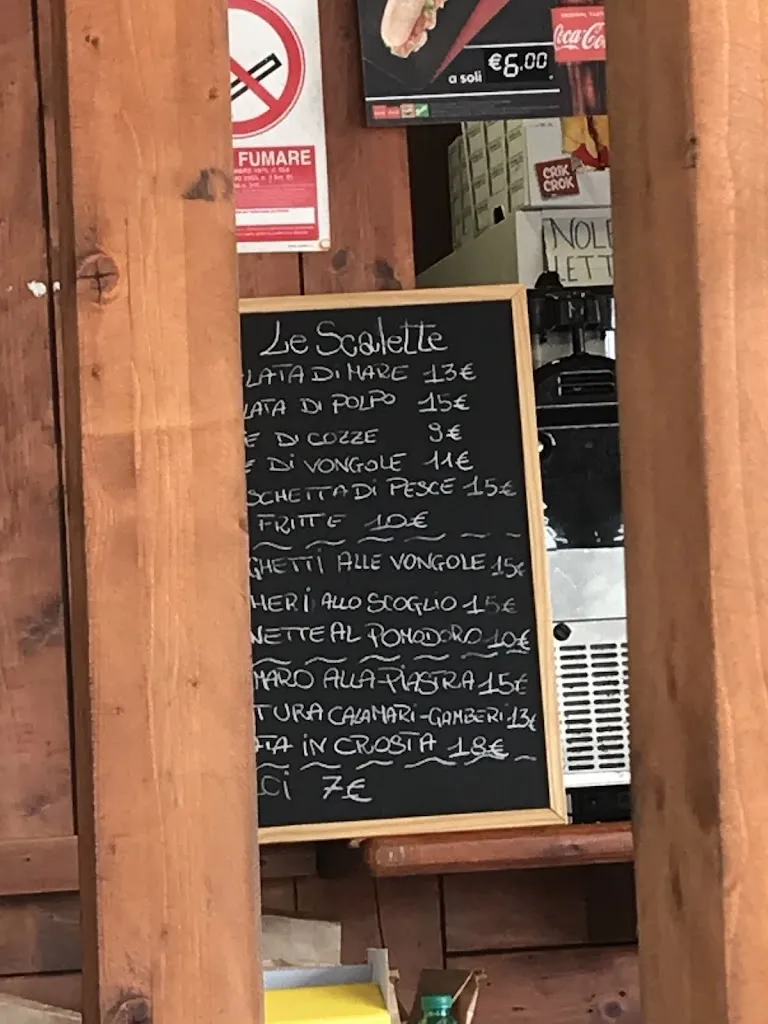 FUMARE
a soli €6.00
Coca-Co
CRIK
CROK
NOLE
LETT
Le Scalette
LATA DI MARE 13€
LATA DI POLPO 15€
E DI COZZE 9€
E DI VONGOLE 11€
SCHETTA DI PESCE 15€
FRITTE 10€
GHETTI ALLE VONGOLE 15€
HERI ALLO SCOGLIO 15€
NETTE AL POMODORO 10€
MARO ALLA PIASTRA 15€
TURA CALAMARI-GAMBERI 13€
ATA IN CROSTA 18€
CI 7€